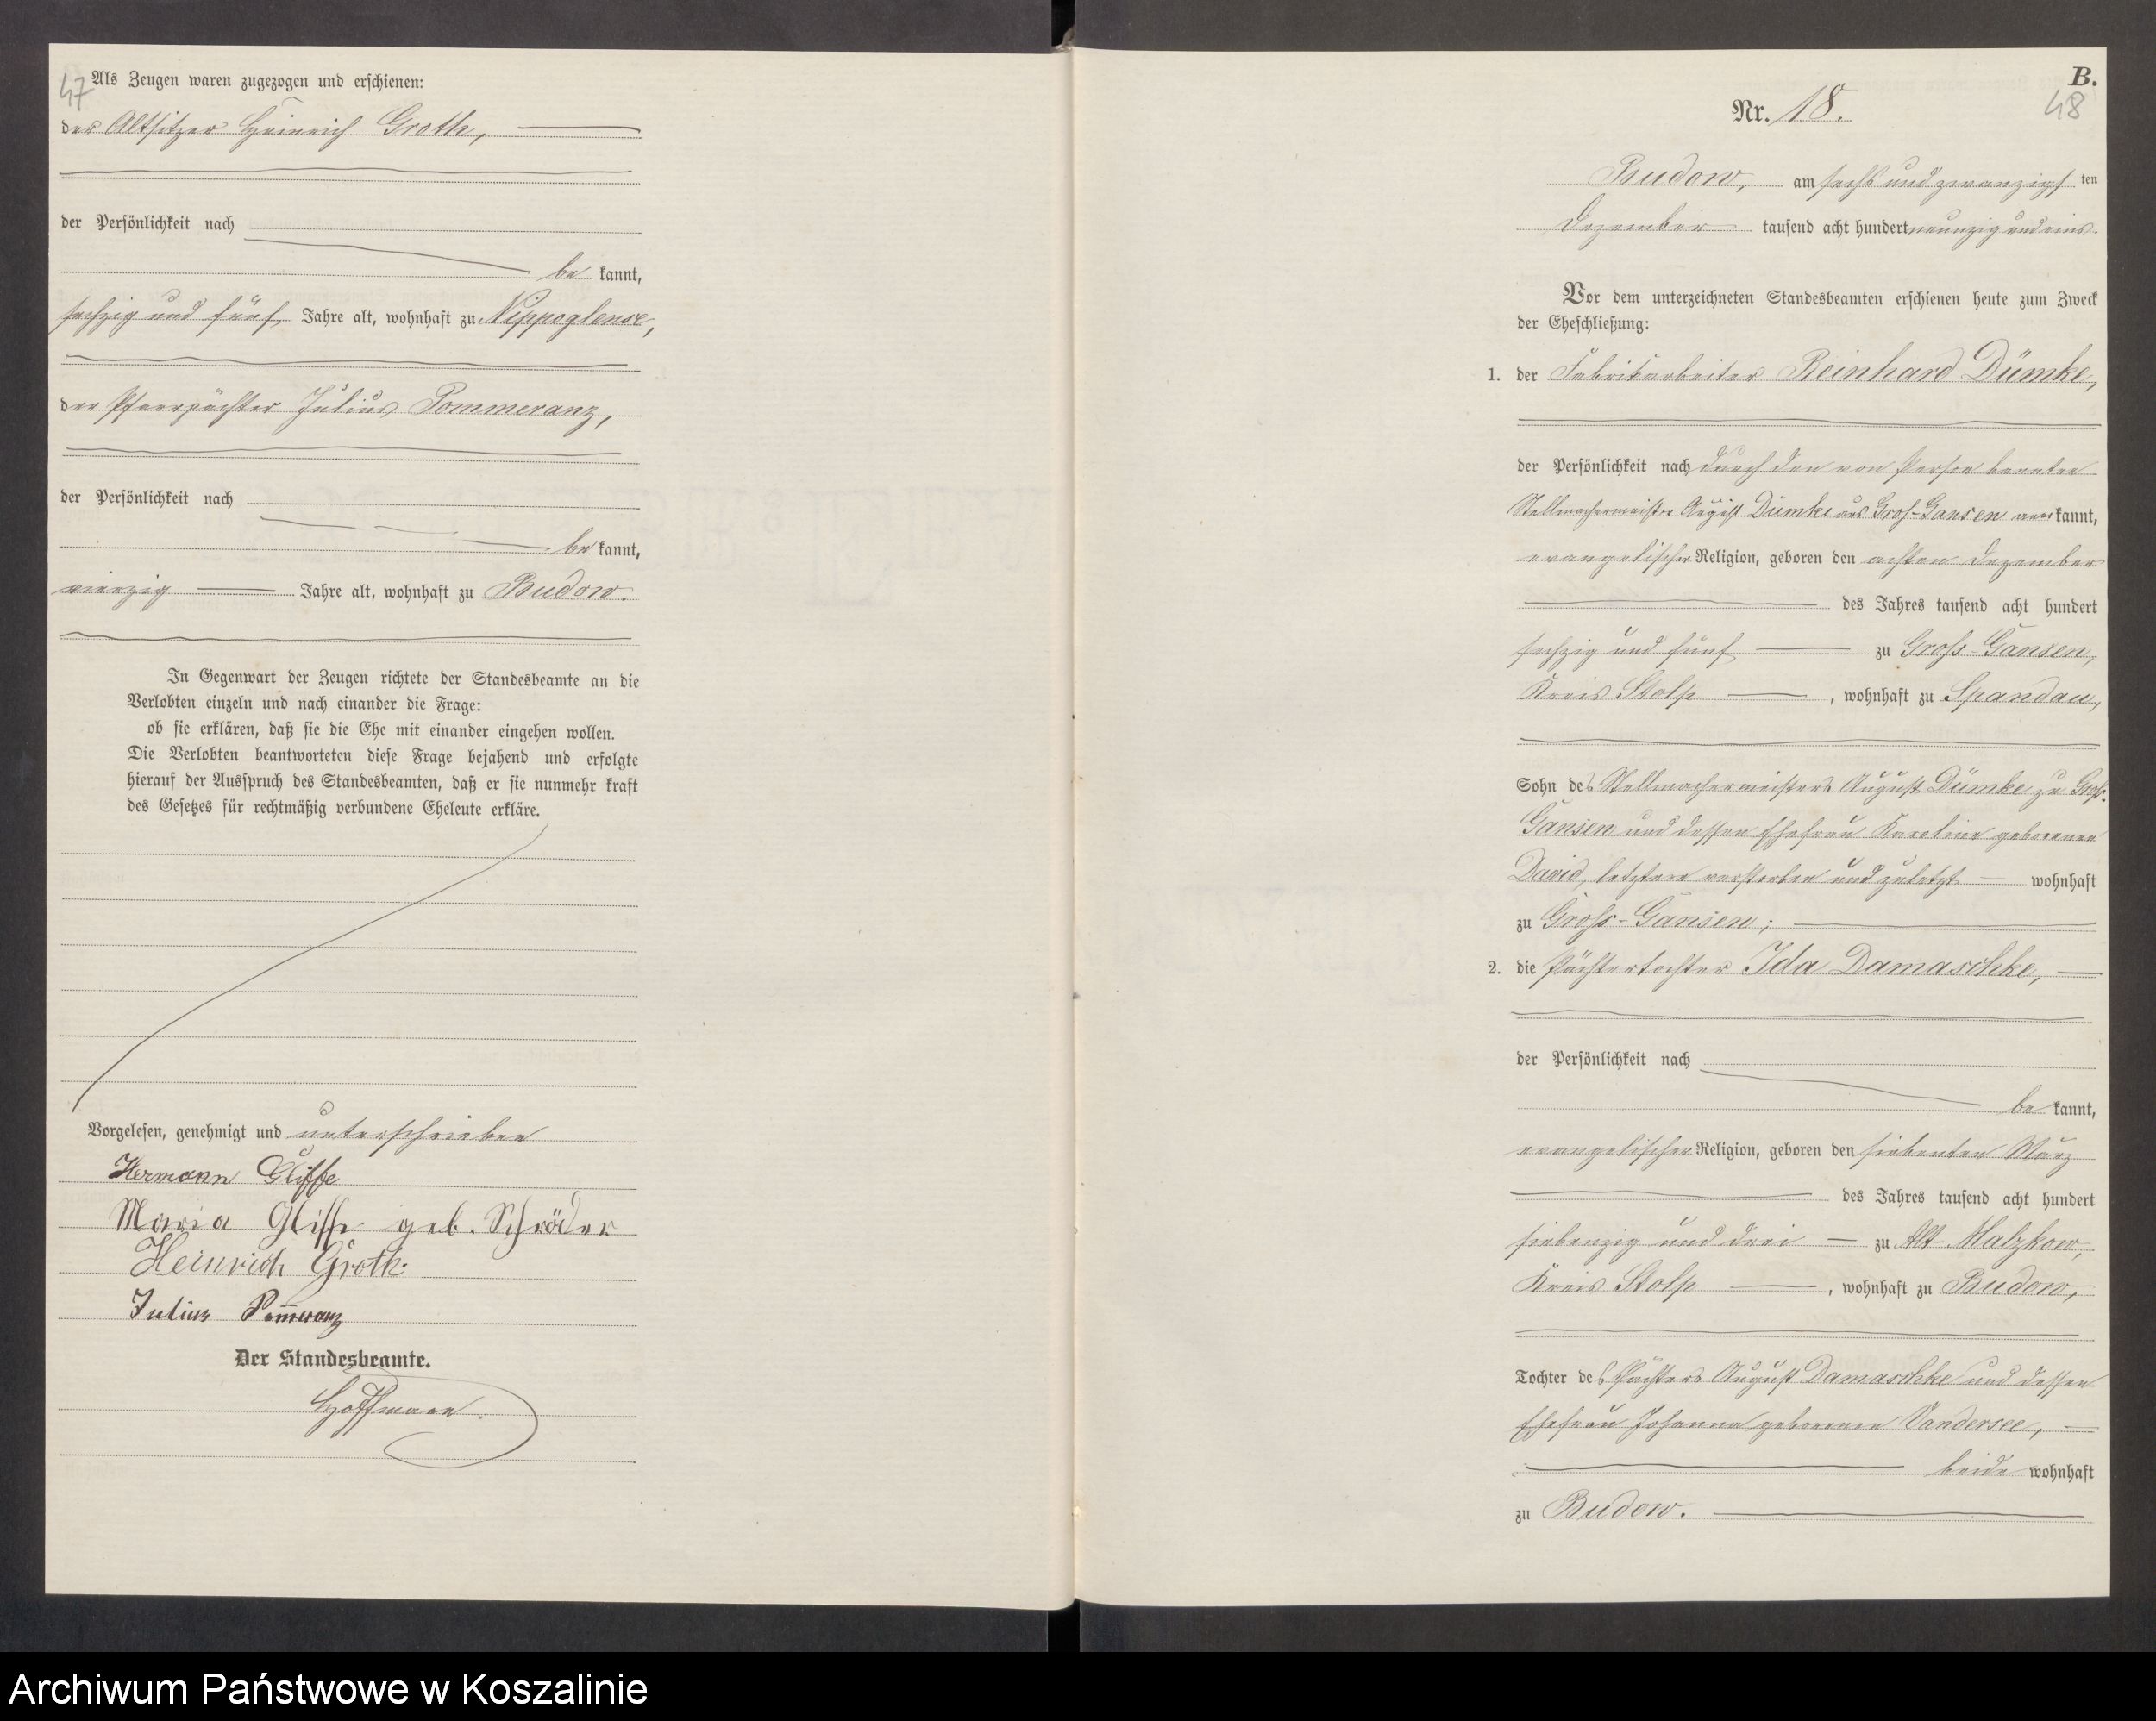 47
Als Zeugen waren zugezogen und erschienen:
der Altsitzer Heinrich Groth,
der Persönlichkeit nach
be kannt,
sechzig und fünf Jahre alt, wohnhaft zu Nippoglense,
der Pfarrpächter Julius Pommeranz,
der Persönlichkeit nach
be kannt,
vierzig Jahre alt, wohnhaft zu Budow.
In Gegenwart der Zeugen richtete der Standesbeamte an die
Verlobten einzeln und nach einander die Frage:
ob sie erklären, daß sie die Ehe mit einander eingehen wollen.
Die Verlobten beantworteten diese Frage bejahend und erfolgte
hierauf der Ausspruch des Standesbeamten, daß er sie nunmehr kraft
des Gesetzes für rechtmäßig verbundene Eheleute erkläre.
Vorgelesen, genehmigt und unterschrieben
Hermann Gliffe
Maria Gliffe geb. Schröder
Heinrich Groth.
Julius Pom̅eranz
Der Standesbeamte.
Hoffmann.
B.
48
Nr. 18.
Budow, am sechs und zwanzigs ten
Dezember tausend acht hundert neunzig und eins.
Vor dem unterzeichneten Standesbeamten erschienen heute zum Zweck
der Eheschließung:
1. der Fabrikarbeiter Reinhard Dümke,
der Persönlichkeit nach durch den von Person bekannten
Stellmachermeister August Dümke aus Groß-Gansen aner kannt,
evangelischer Religion, geboren den achten Dezember
des Jahres tausend acht hundert
sechzig und fünf zu Groß-Gansen,
Kreis Stolp, wohnhaft zu Spandau,
Sohn des Stellmachermeisters August Dümke zu Groß-
Gansen und dessen Ehefrau Karoline geborenen
David, letztere verstorben und zuletzt wohnhaft
zu Groß-Gansen;
2. die Pächtertochter Ida Damaschke,
der Persönlichkeit nach
be kannt,
evangelischer Religion, geboren den siebenten März
des Jahres tausend acht hundert
siebenzig und drei zu Alt Malzkow,
Kreis Stolp, wohnhaft zu Budow,
Tochter des Pächters August Damaschke und dessen
Ehefrau Johanna geborenen Vandersee,
beide wohnhaft
zu Budow.
Archiwum Państwowe w Koszalinie